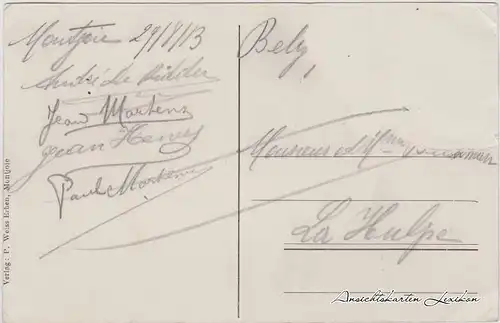 Montjoie 29/8/13
André de Ridder
Jean Martens
Jean Henry
Paul Martens
Verlag: P. Weiss Erben, Montjoie
Belg,
Monsieur et Mme
La Hulpe
Ansichtskarten Lexikon